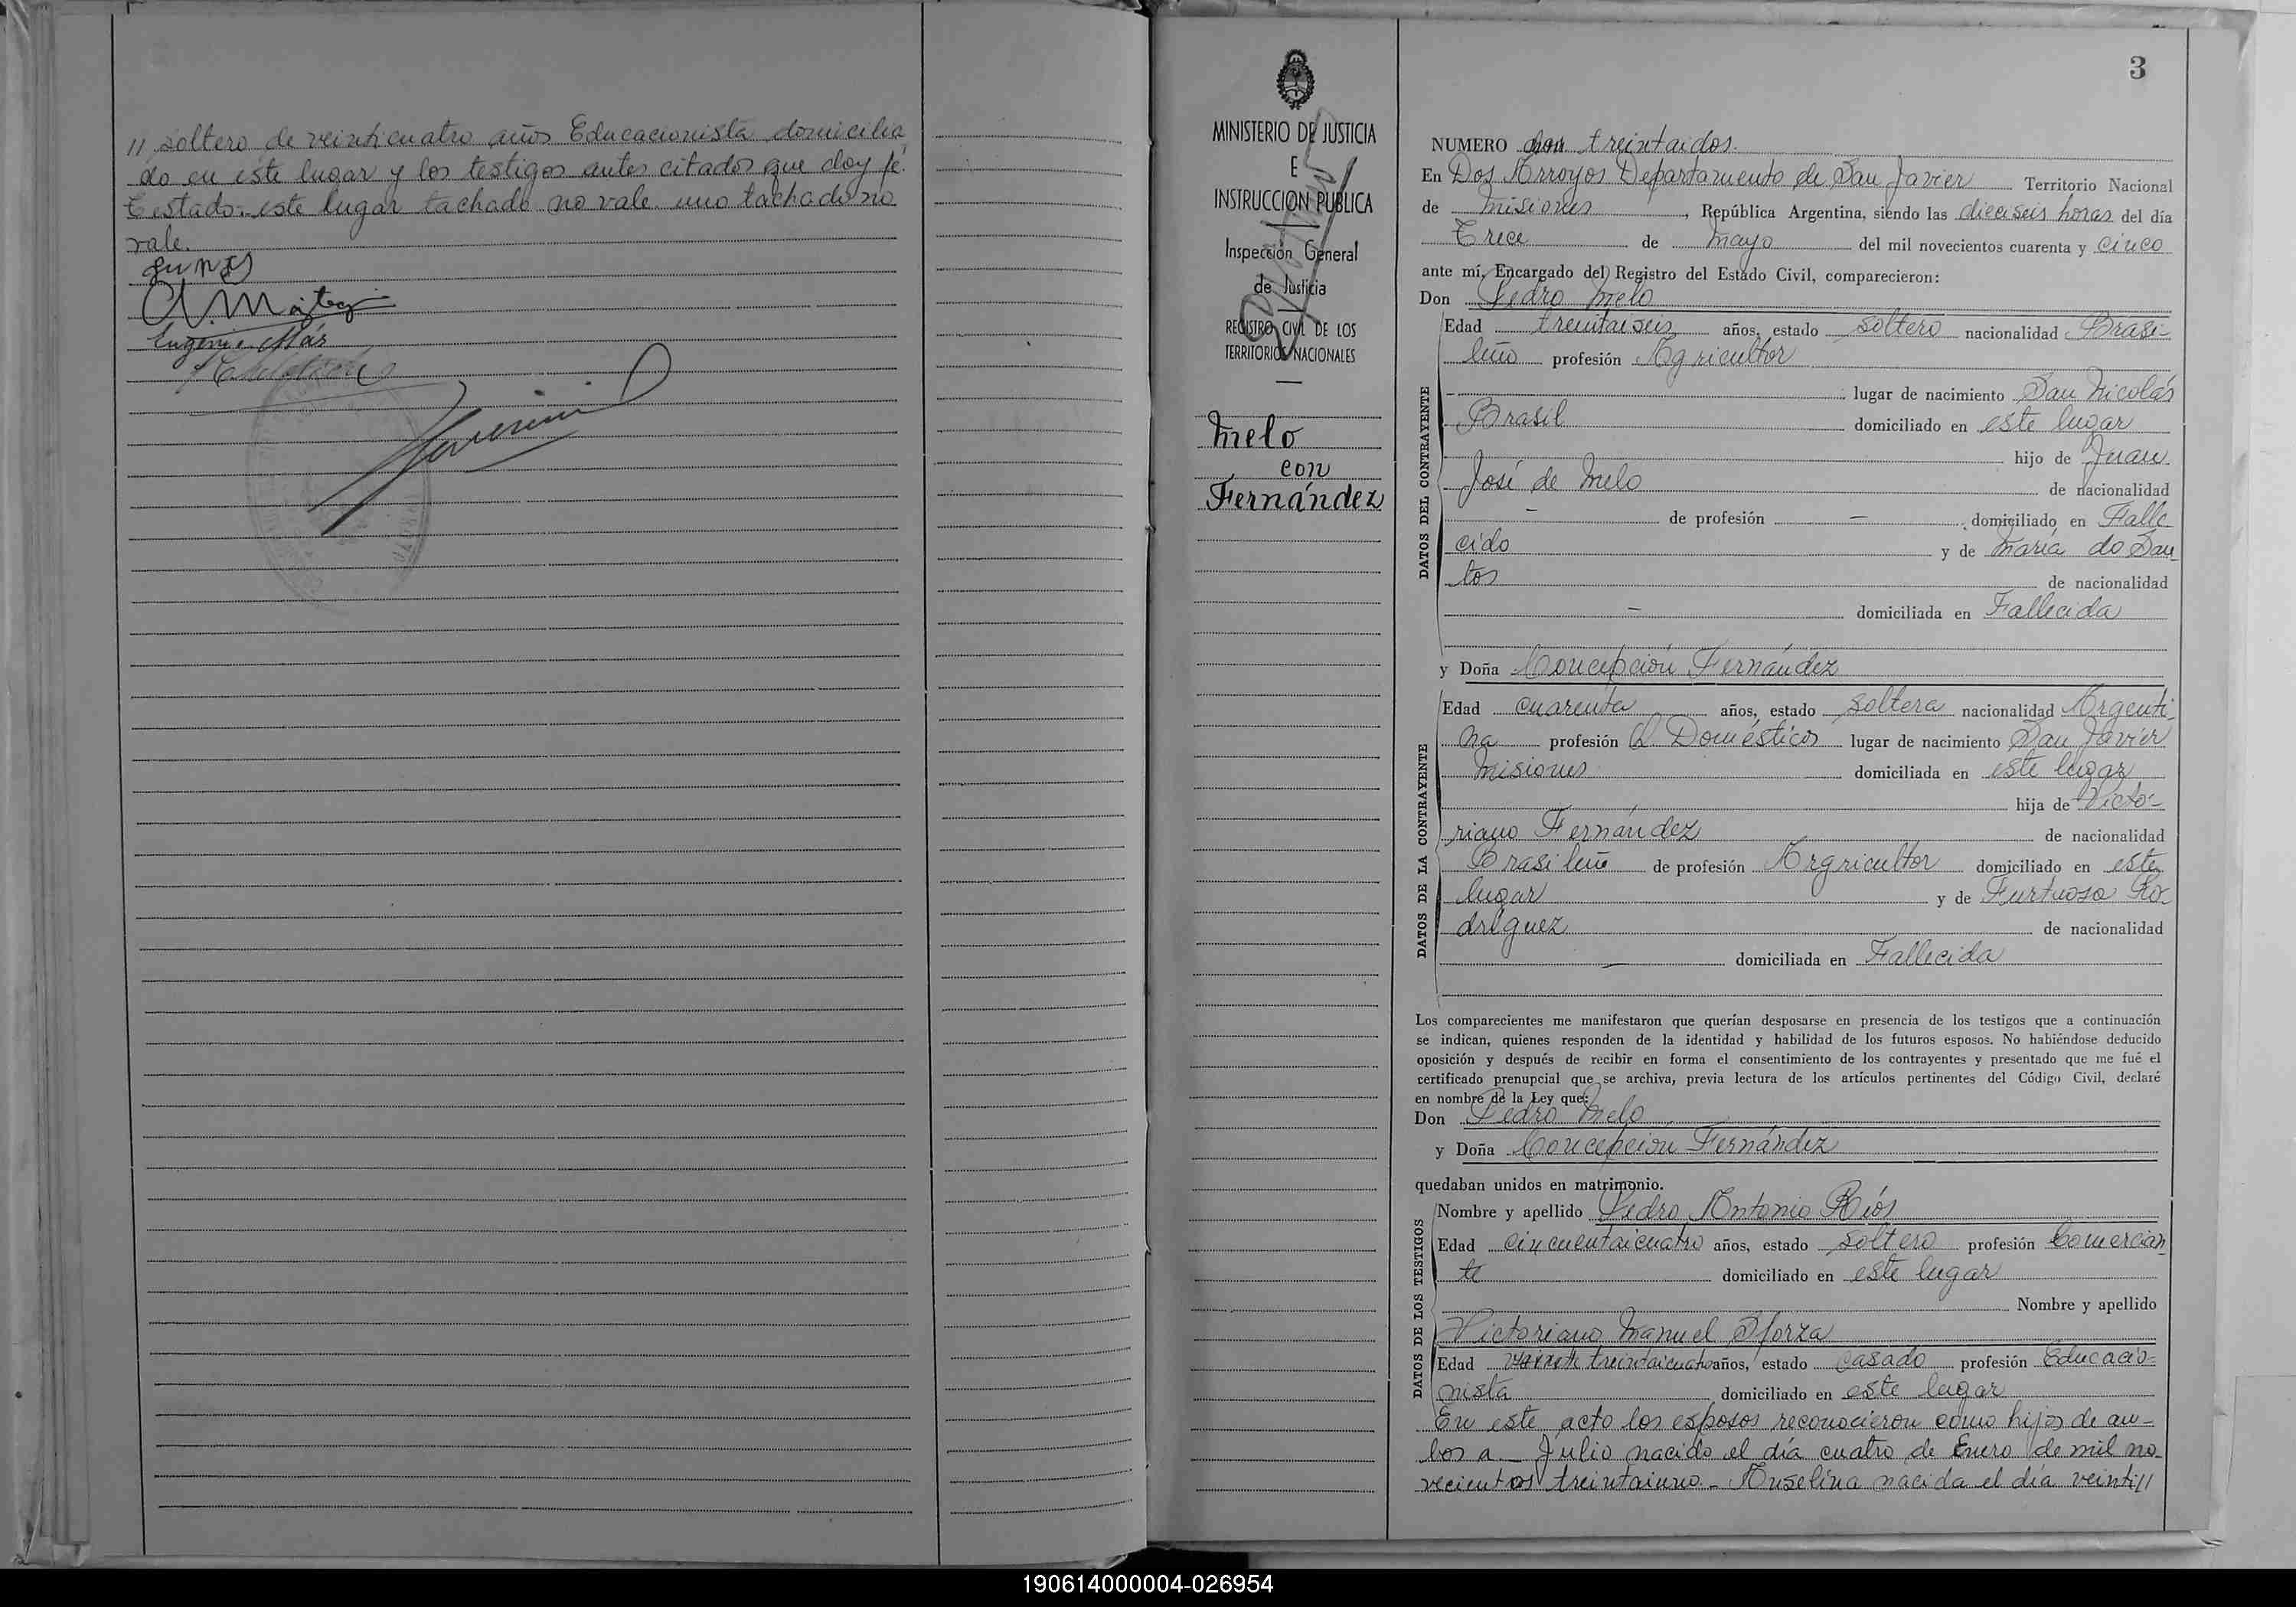 // soltero de veinticuatro años Educacionista domicilia
do en este lugar y los testigos antes citados que doy fé.
Testado: este lugar tachado no vale. uno tachado no
vale.
Eugenio Más
3
MINISTERIO DE JUSTICIA
E
INSTRUCCION PUBLICA
Inspección General
de Justicia
REGISTRO CIVIL DE LOS
TERRITORIOS NACIONALES
Melo
con
Fernández
NUMERO treintaidos.
En Dos Arroyos Departamento de San Javier Territorio Nacional
de Misiones, República Argentina, siendo las dieciseis horas del día
Trece de Mayo del mil novecientos cuarenta y cinco
ante mí, Encargado del Registro del Estado Civil, comparecieron:
Don Pedro Melo
DATOS DEL CONTRAYENTE
Edad treintaiseis años, estado soltero nacionalidad Brasi-
leño profesión Agricultor
lugar de nacimiento San Nicolás
Brasil domiciliado en este lugar
hijo de Juan
José de Melo de nacionalidad
- de profesión - domiciliado en Falle-
cido y de María do San-
tos de nacionalidad
- domiciliada en Fallecida
y Doña Concepción Fernández
DATOS DE LA CONTRAYENTE
Edad cuarenta años, estado soltera nacionalidad Argenti-
na profesión Q. Domésticos lugar de nacimiento San Javier
Misiones domiciliada en este lugar
hija de Victo-
riano Fernández de nacionalidad
Brasileño de profesión Argricultor domiciliado en este
lugar y de Furtuosa Ro-
dríguez de nacionalidad
- domiciliada en Fallecida
Los comparecientes me manifestaron que querían desposarse en presencia de los testigos que a continuación
se indican, quienes responden de la identidad y habilidad de los futuros esposos. No habiéndose deducido
oposición y después de recibir en forma el consentimiento de los contrayentes y presentado que me fué el
certificado prenupcial que se archiva, previa lectura de los artículos pertinentes del Código Civil, declaré
en nombre de la Ley que:
Don Pedro Melo
y Doña Concepción Fernández
quedaban unidos en matrimonio.
DATOS DE LOS TESTIGOS
Nombre y apellido Pedro Antonio Ríos
Edad cincuentaicuatro años, estado soltero profesión Comercian-
te domiciliado en este lugar
Nombre y apellido
Victoriano Manuel Sforza
Edad treintaicuatro años, estado casado profesión Educacio-
nista domiciliado en este lugar
En este acto los esposos reconocieron como hijos de am-
bos a - Julio nacido el día cuatro de Enero de mil no-
vecientos treintaiuno. - Anselina nacida el día veinti//
190614000004-026954